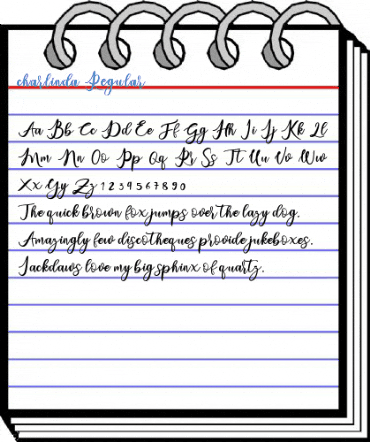 charlinda Regular
Aa Bb Cc Dd Ee Ff Gg Hh Ii Jj Kk Ll
Mm Nn Oo Pp Qq Rr Ss Tt Uu Vv Ww
Xx Yy Zz 1 2 3 4 5 6 7 8 9 0
The quick brown fox jumps over the lazy dog.
Amazingly few discotheques provide jukeboxes.
Jackdaws love my big sphinx of quartz.